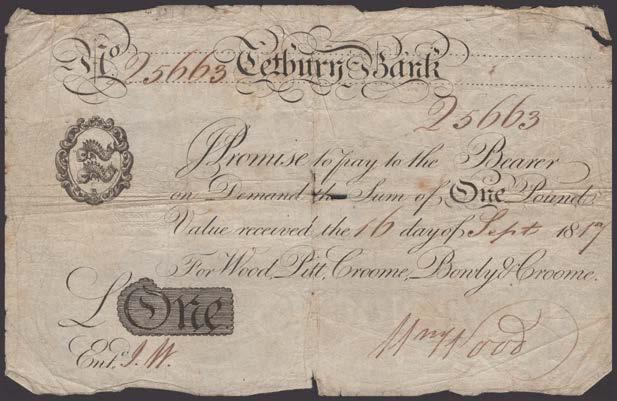 No 25663 Tetbury Bank
25663
I Promise to pay to the Bearer
on Demand the Sum of One Pound
Value received the 16 day of Sept 1817
For Wood, Pitt, Croome, Bowly & Croome.
£ One
Entd J.W. Wm Wood